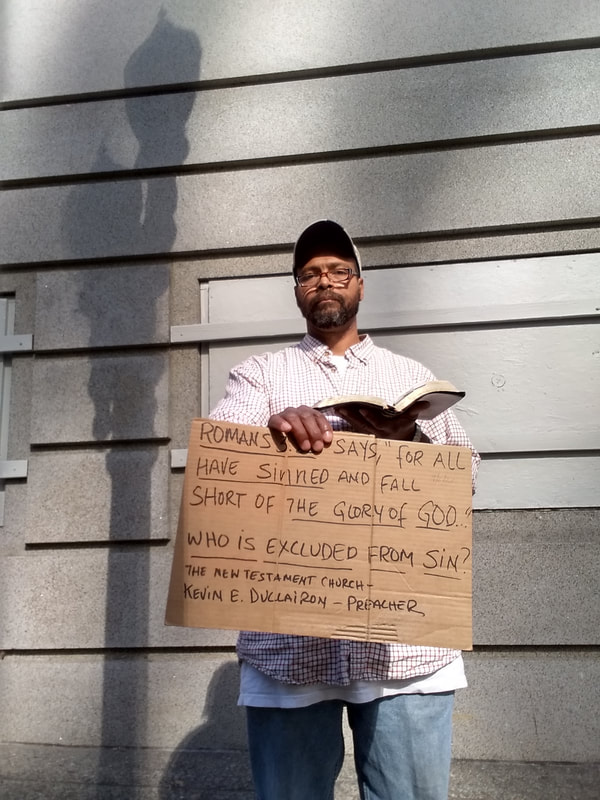 ROMANS SAYS, "FOR ALL
HAVE SINNED AND FALL
SHORT OF THE GLORY OF GOD..."
WHO IS EXCLUDED FROM SIN?
THE NEW TESTAMENT CHURCH -
KEVIN E. DULLAIRON - PREACHER